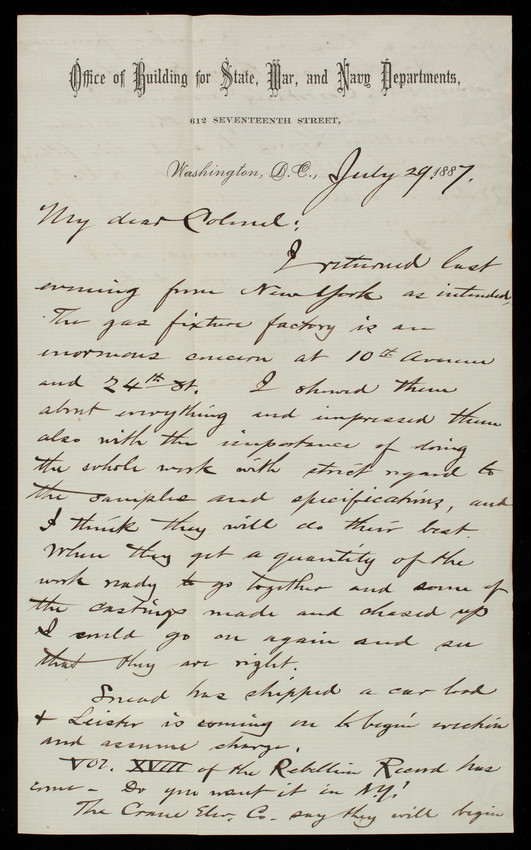 Office of Building for State, War, and Navy Departments,
612 SEVENTEENTH STREET,
Washington, D.C., July 29, 1887.
My dear Colonel:
I returned last
evening from New York as intended,
The gas fixture factory is an
enormous concern at 10th Avenue
and 24th St. I showed them
about everything and impressed them
also with the importance of doing
the whole work with strict regard to
the samples and specifications, and
I think they will do their best.
When they get a quantity of the
work ready to go together and some of
the castings made and chased up
I could go on again and see
that they are right.
Snead has shipped a car load
& Leister is coming on to begin erection
and assume charge.
Vol. XVIII of the Rebellion Record has
come – Do you want it in N.Y.?
The Crane Elev. Co. say they will begin